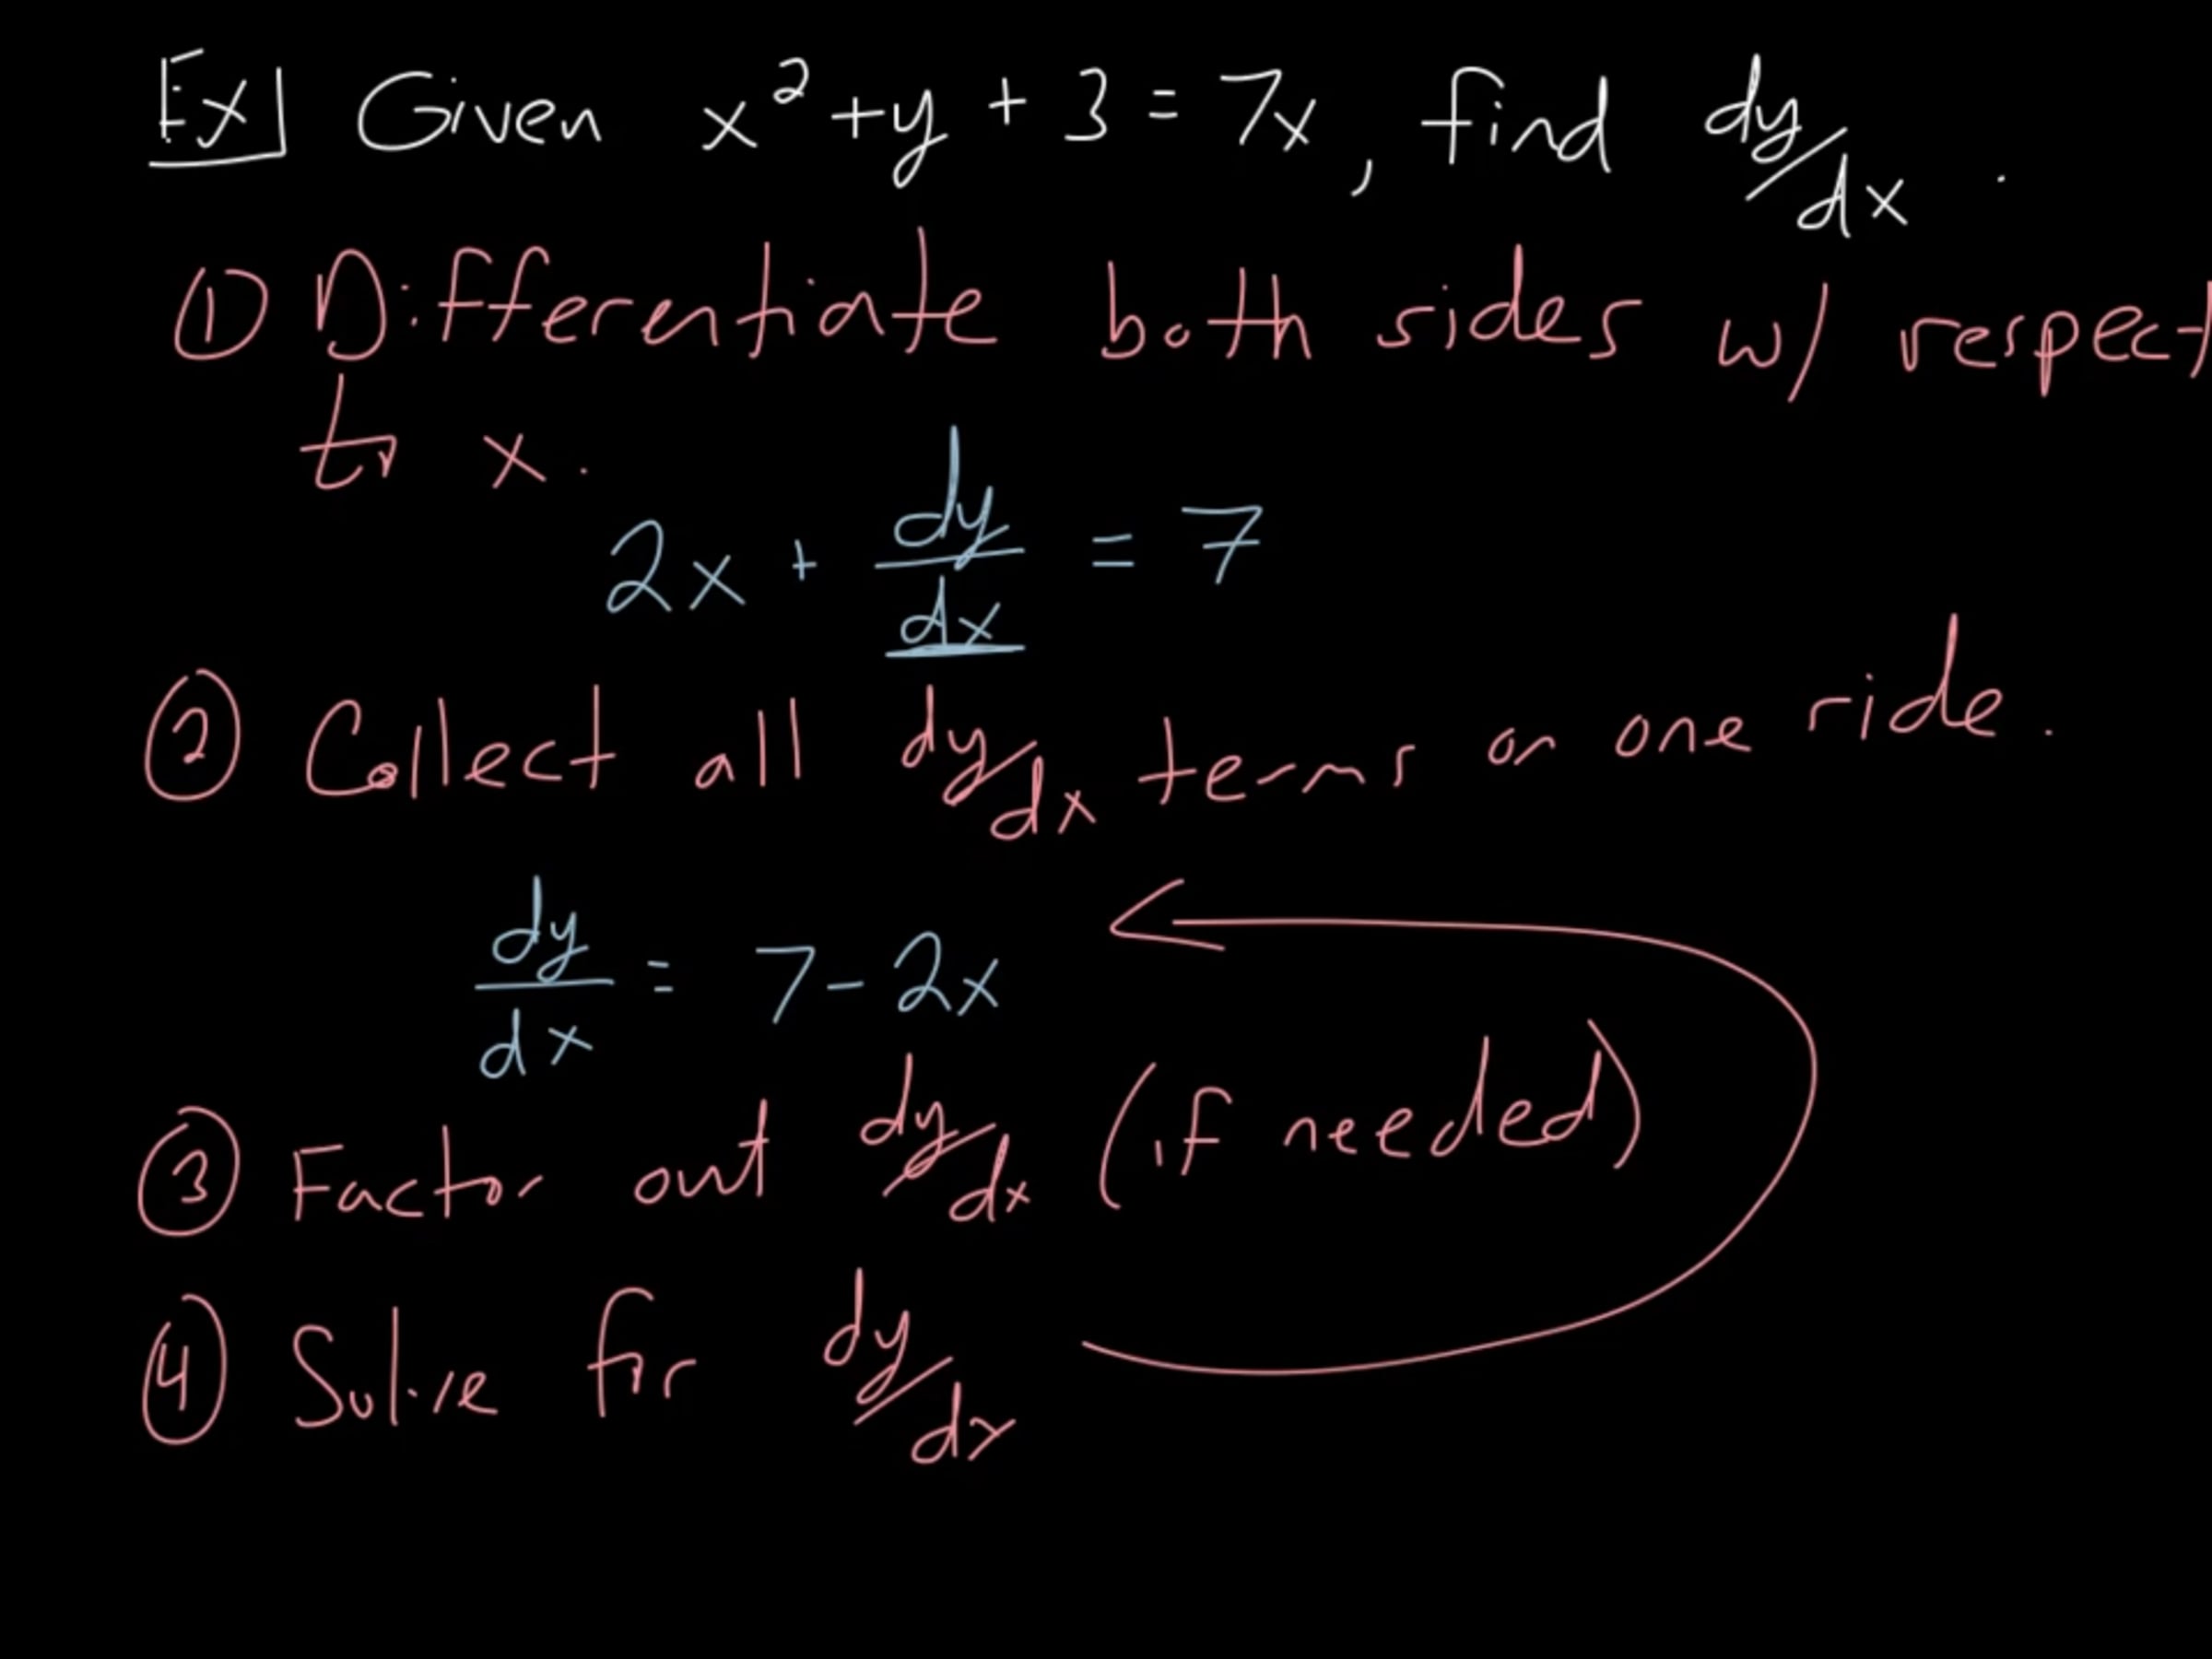 Ex] Given x² + y + 3 = 7x, find dy/dx.
① Differentiate both sides w/ respect
to x.
2x + dy/dx = 7
② Collect all dy/dx terms on one side.
dy/dx = 7 - 2x
③ Factor out dy/dx (if needed)
④ Solve for dy/dx